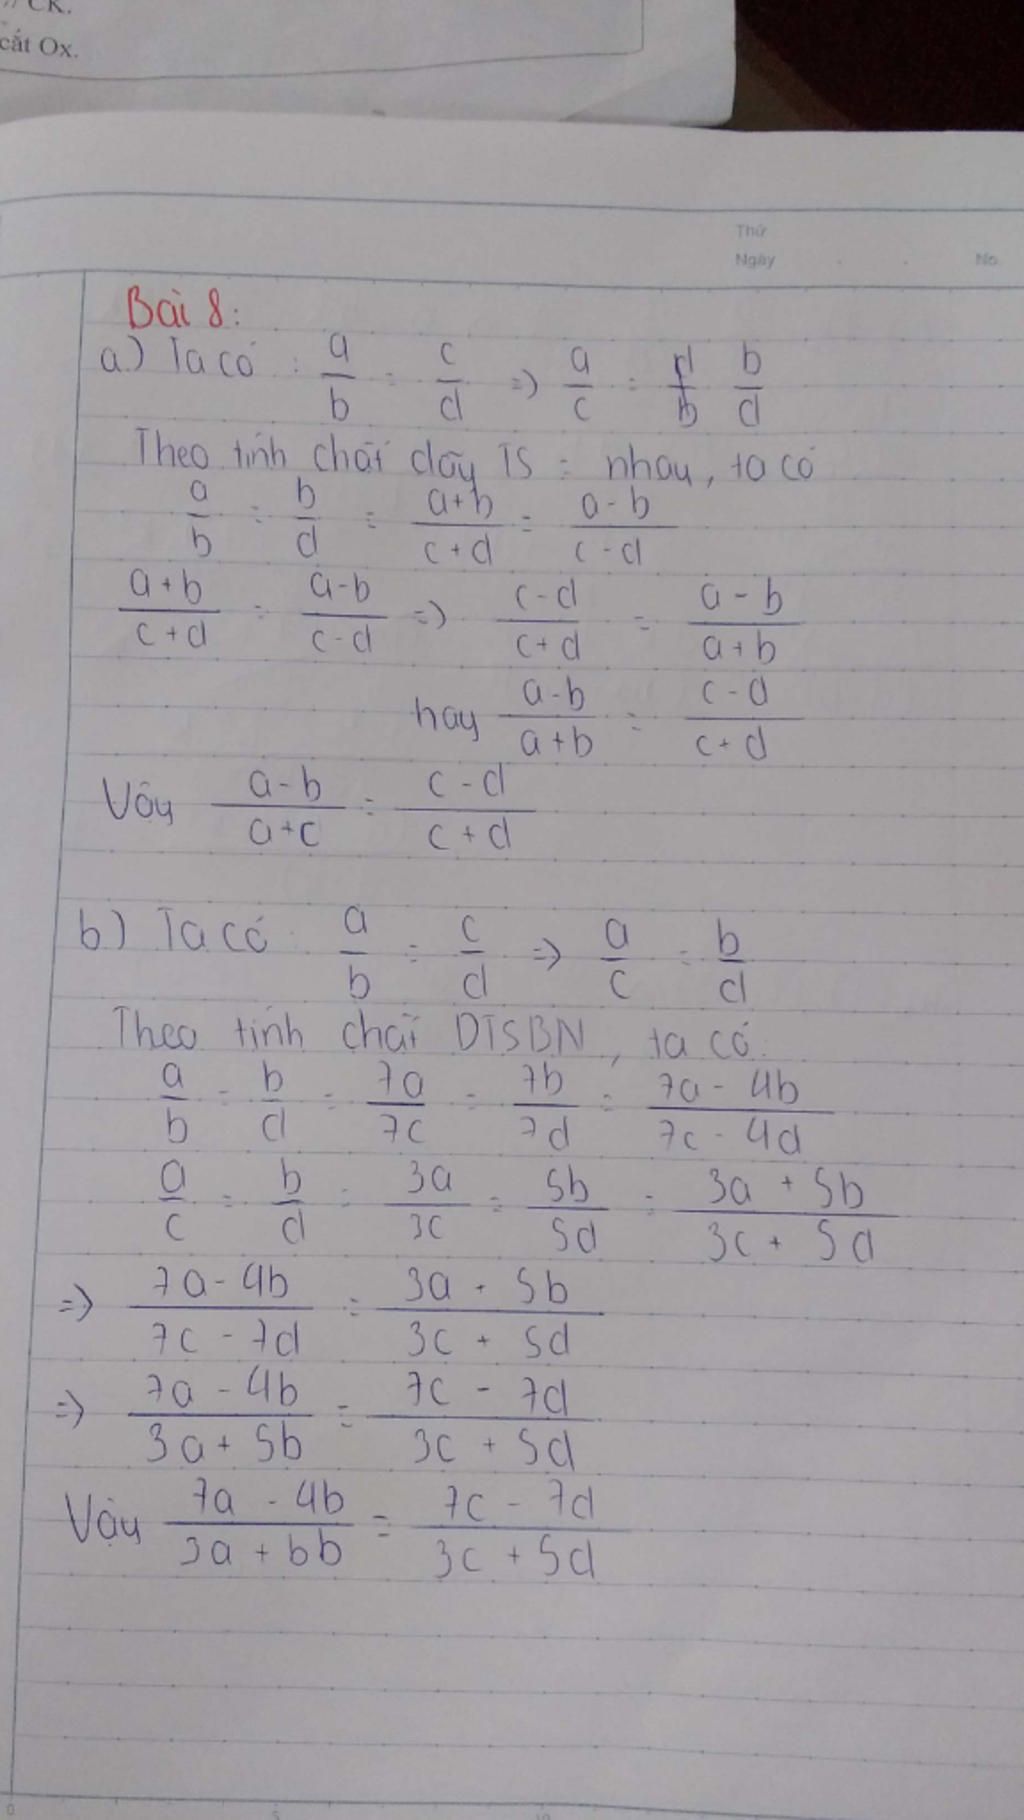 // CK.
cắt Ox.
Thứ
Ngày No.
Bài 8:
a) Ta có : a/b = c/d => a/c = b/d
Theo tính chất dãy TS = nhau, ta có
a/b = b/d = a+b/c+d = a-b/c-d
a+b/c+d = a-b/c-d => c-d/c+d = a-b/a+b
hay a-b/a+b = c-d/c+d
Vậy a-b/a+c = c-d/c+d
b) Ta có a/b = c/d => a/c = b/d
Theo tính chất DTSBN, ta có
a/b = b/d = 7a/7c = 7b/7d = 7a-4b/7c-4d
a/c = b/d = 3a/3c = 5b/5d = 3a+5b/3c+5d
=> 7a-4b/7c-7d = 3a+5b/3c+5d
=> 7a-4b/3a+5b = 7c-7d/3c+5d
Vậy 7a-4b/3a+bb = 7c-7d/3c+5d
0 5 10